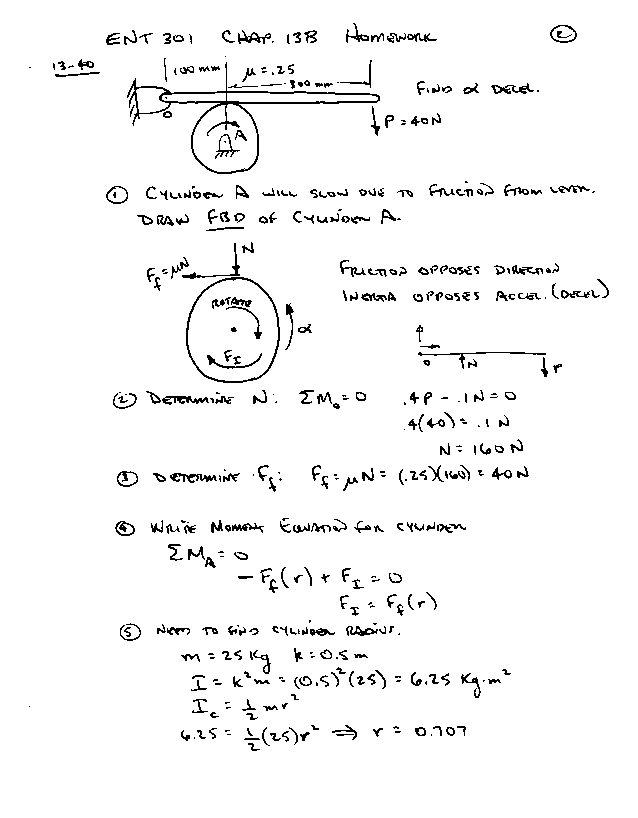 ENT 301 CHAP. 13B HOMEWORK
2
13-40
100 mm
μ = .25
300 mm
FIND α DECEL.
O
A
P = 40N
① CYLINDER A WILL SLOW DUE TO FRICTION FROM LEVER.
DRAW FBD OF CYLINDER A.
N
F_f = μN
FRICTION OPPOSES DIRECTION
INERTIA OPPOSES ACCEL. (DECEL)
ROTATE
α
F_I
O
N
P
② DETERMINE N: ΣM_o = 0 .4P - .1N = 0
.4(40) = .1N
N = 160 N
③ DETERMINE F_f: F_f = μN = (.25)(160) = 40N
④ WRITE MOMENT EQUATION FOR CYLINDER
ΣM_A = 0
- F_f(r) + F_I = 0
F_I = F_f(r)
⑤ NEED TO FIND CYLINDER RADIUS.
m = 25 Kg k = 0.5 m
I = k²m = (0.5)²(25) = 6.25 Kg·m²
I_c = 1/2 mr²
6.25 = 1/2 (25)r² ⇒ r = 0.707